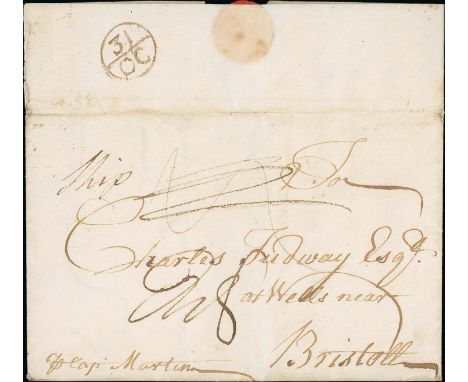 31
OC
Ship
To
Charles Tudway Esqr.
at Wells near
Bristoll
⅌ Cap Martin